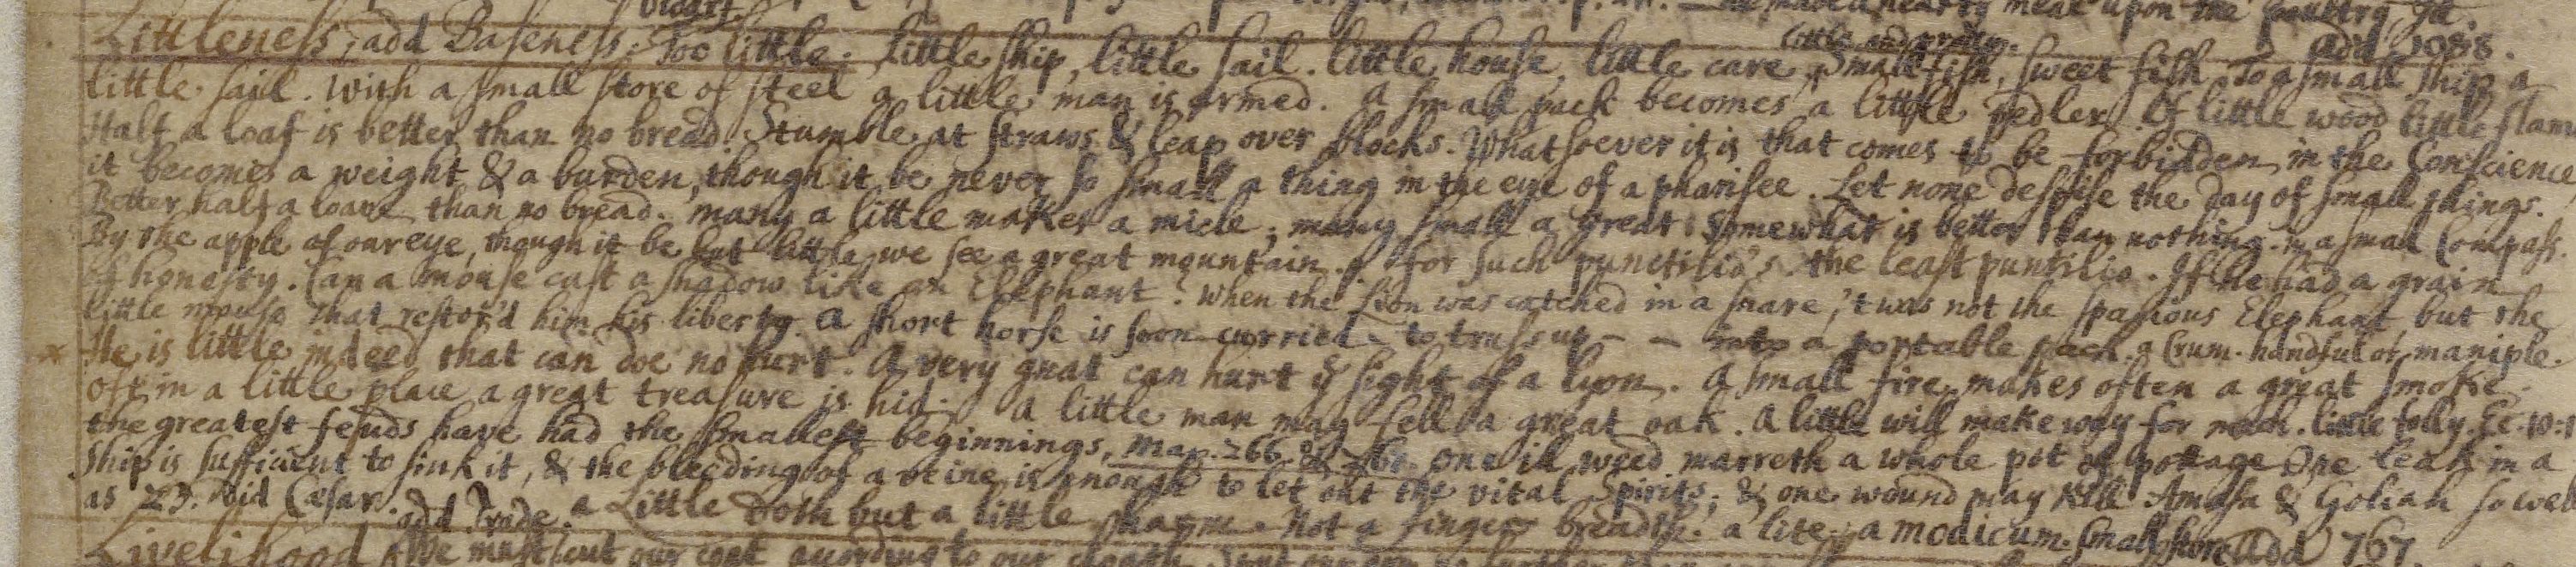 he made a hearty meal upon the poultry. Id.
vid art. Little and pretty. add 1088.
Littleness, add Baseness. Too little. little ship, little sail. little house, little care. Small fish, sweet fish. To a small ship a
little sail. With a small store of steel a little man is armed. A small pack becomes a little pedler. Of little wood little flame
Half a loaf is better than no bread. Stumble at straws & leap over blocks. Whatsoever it is that comes to be forbidden in the Conscience
it becomes a weight & a burden, though it be never so small a thing in the eye of a pharisee. Let none despise the day of small things.
Better half a loave than no bread. many a little makes a micle; many small a great. Somewhat is better than nothing. in a small Compass.
By the apple of our eye, though it be but little, we see a great mountain. for such punctilio's. the least puntilio. If he had a grain
of honesty. Can a mouse cast a shadow like an Elephant? When the Lion was catched in a snare, 't was not the spatious Elephant, but the
little mouse that restor'd him his liberty. A short horse is soon curried. to truss up - - into a portable pack. a Crum. handful or maniple.
He is little indeed that can doe no hurt. A very gnat can hurt ye sight of a lyon. A small fire makes often a great smoke.
oft in a little place a great treasure is hid. A little man may fell a great oak. A little will make way for much. little folly. Ec. 10:1
the greatest feuds have had the smallest beginnings, Mar. 266. & 761. One ill weed marreth a whole pot of pottage. One leak in a
Ship is sufficient to sink it, & the bleeding of a veine is enough to let out the vital Spirits; & one wound may kill Amasa & Goliah so well
as 23. did Cæsar. a Little doth but a little harm. Not a fingers breadth. a lite. a modicum. small store add 767.
add Trade.
Livelihood We must cut our coat according to our cloath.